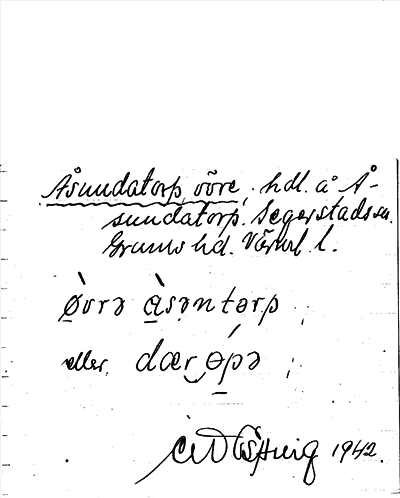 Åsundatorp, övre, hdl. å Å-
sundatorp. Segerstads sn.
Grums hd. Värml. l.
øvrə àsəntərp
eller dær ɵpə ;
1942.